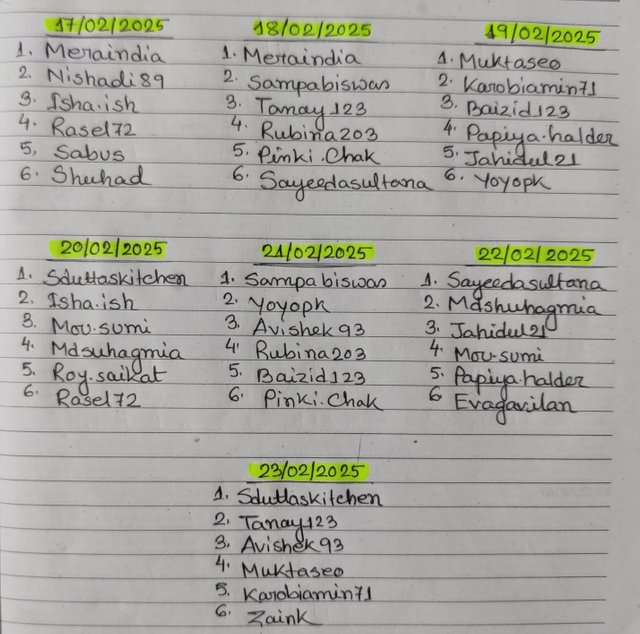 17/02/2025
1. Meraindia
2. Nishadi89
3. Isha.ish
4. Rasel72
5. Sabus
6. Shuhad
18/02/2025
1. Meraindia
2. Sampabiswas
3. Tanay123
4. Rubina203
5. Pinki.Chak
6. Sayeedasultana
19/02/2025
1. Muktaseo
2. Karobiamin71
3. Baizid123
4. Papiya.halder
5. Jahidul21
6. Yoyopk
20/02/2025
1. Sduttaskitchen
2. Isha.ish
3. Mou.sumi
4. Mdsuhagmia
5. Roy.saikat
6. Rasel72
21/02/2025
1. Sampabiswas
2. Yoyopk
3. Avishek93
4. Rubina203
5. Baizid123
6. Pinki.Chak
22/02/2025
1. Sayeedasultana
2. Mdshuhagmia
3. Jahidul21
4. Mou.sumi
5. Papiya.halder
6. Evagavilan
23/02/2025
1. Sduttaskitchen
2. Tanay123
3. Avishek93
4. Muktaseo
5. Karobiamin71
6. Zaink